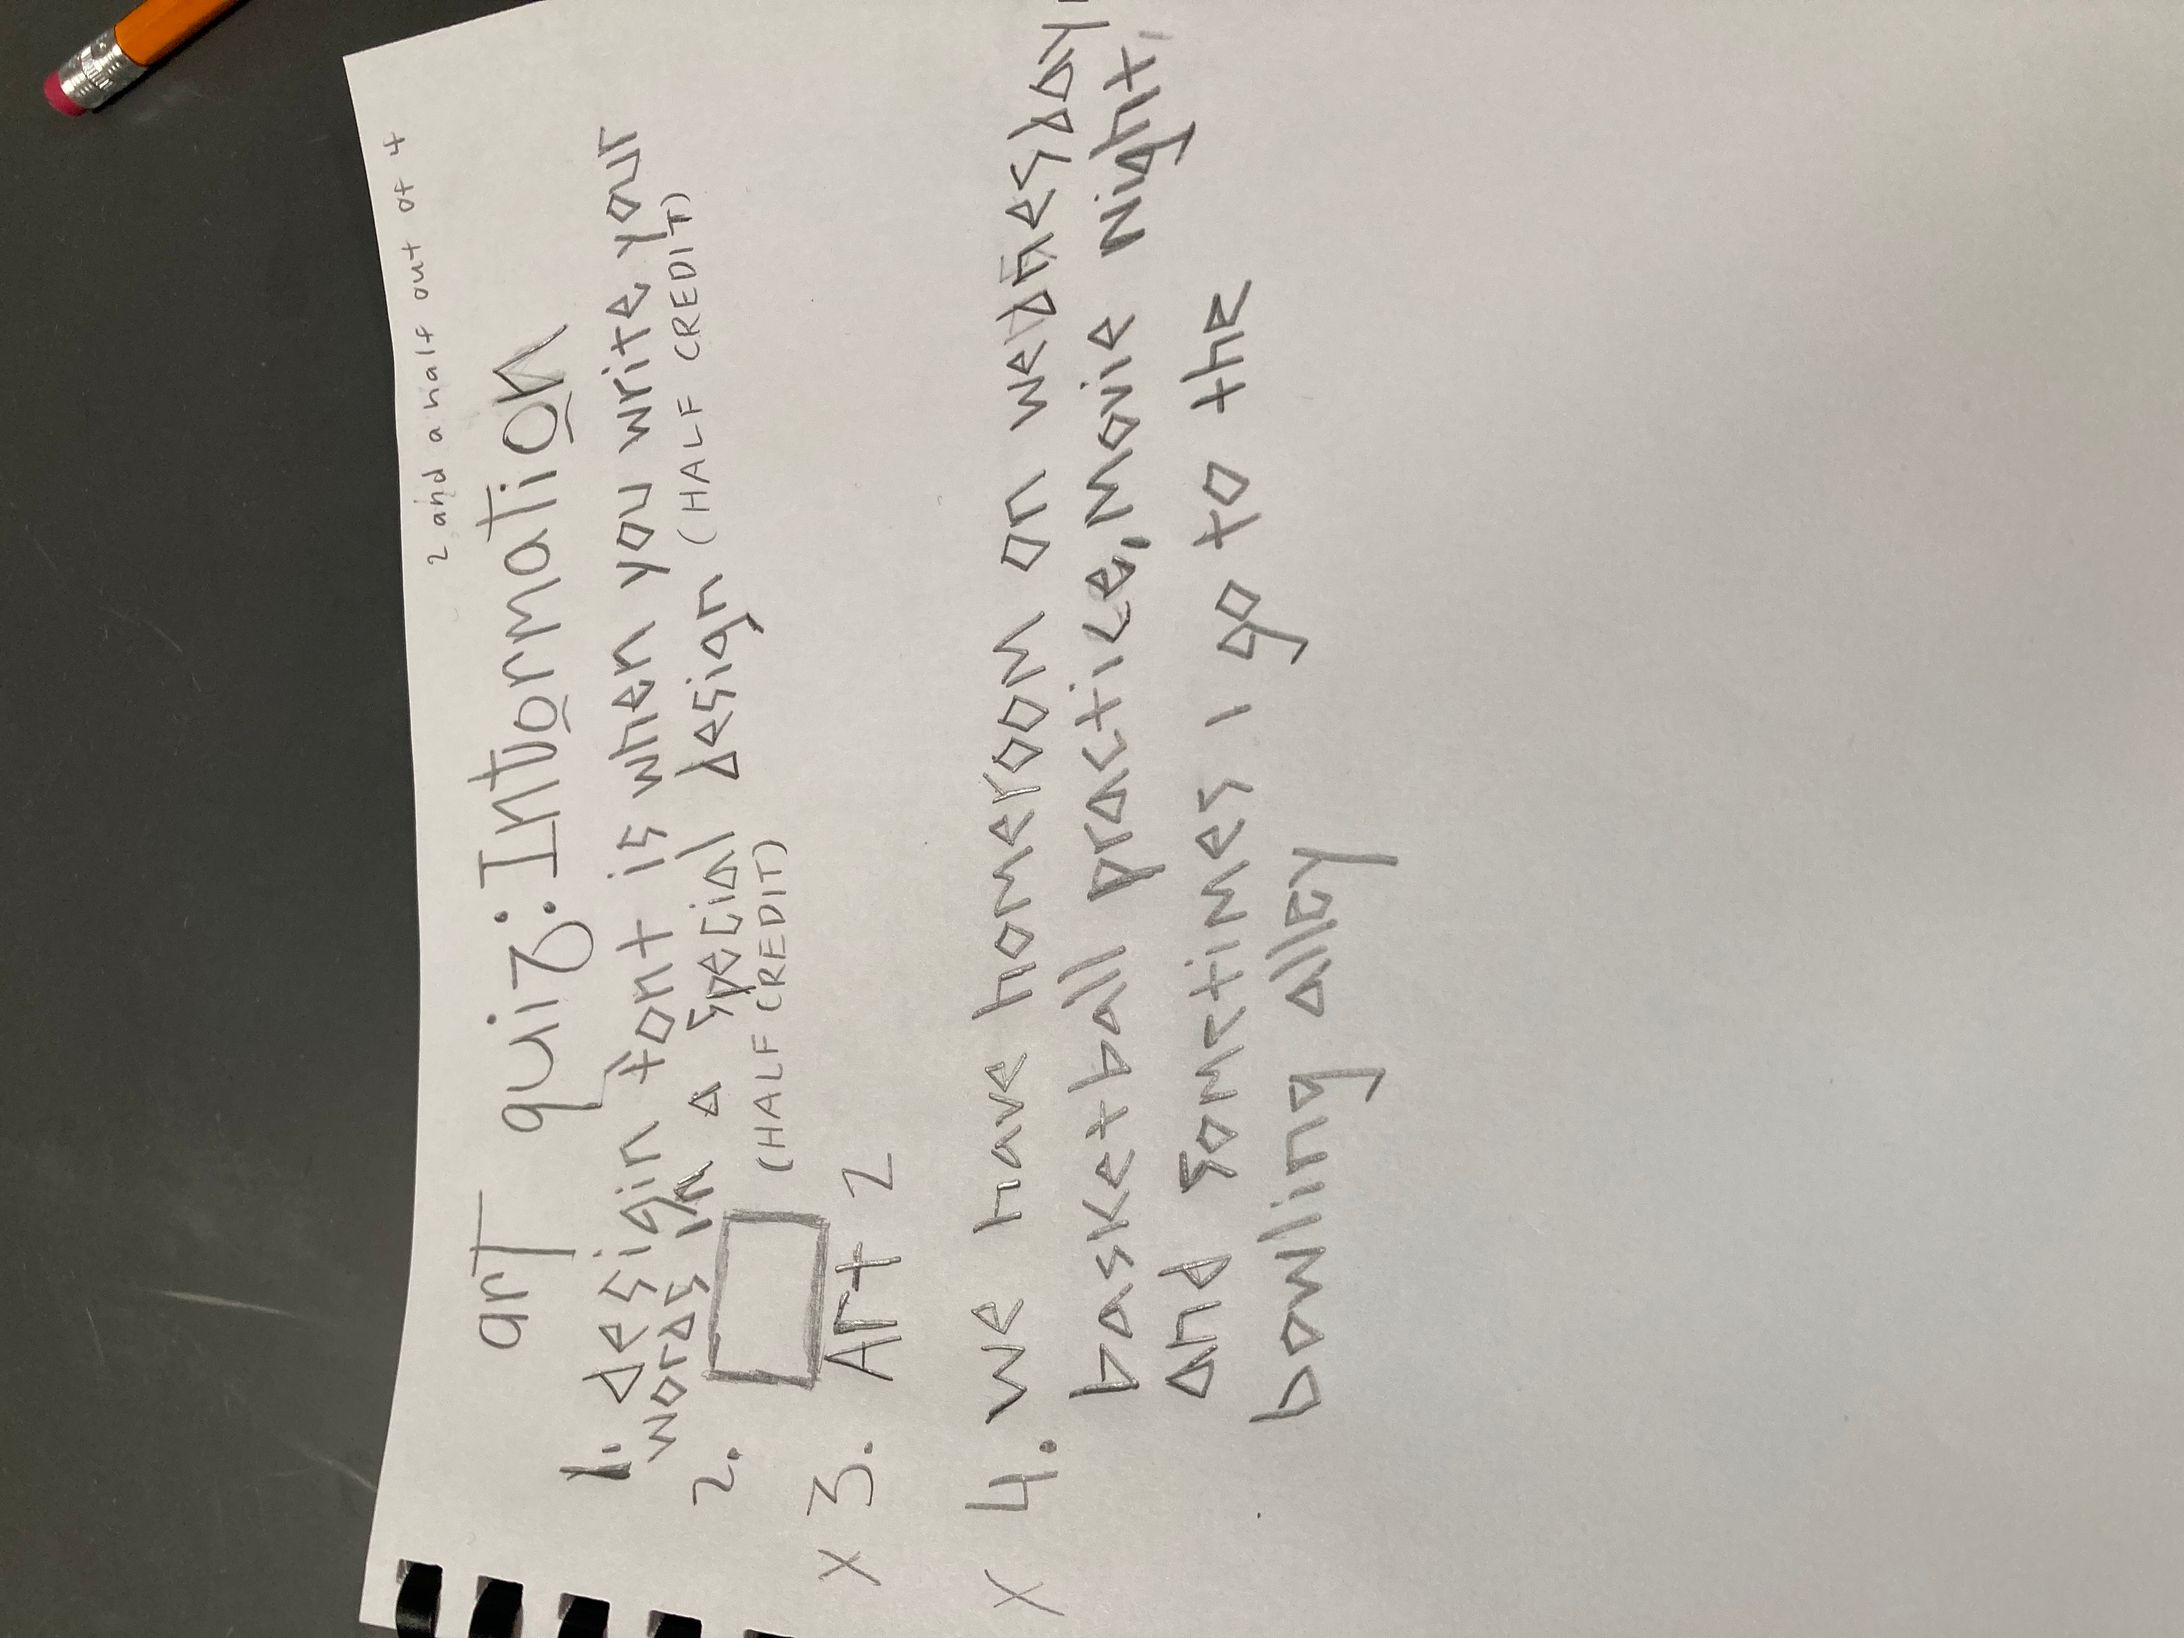 2 and a half out of 4
art quiz: Information
1. design font is when you write your
words in a special design (HALF CREDIT)
2. (HALF CREDIT)
x 3. Art 2
x 4. we have homeroom on wednesday,
basketball practice, Movie Night,
and sometimes I go to the
bowling alley